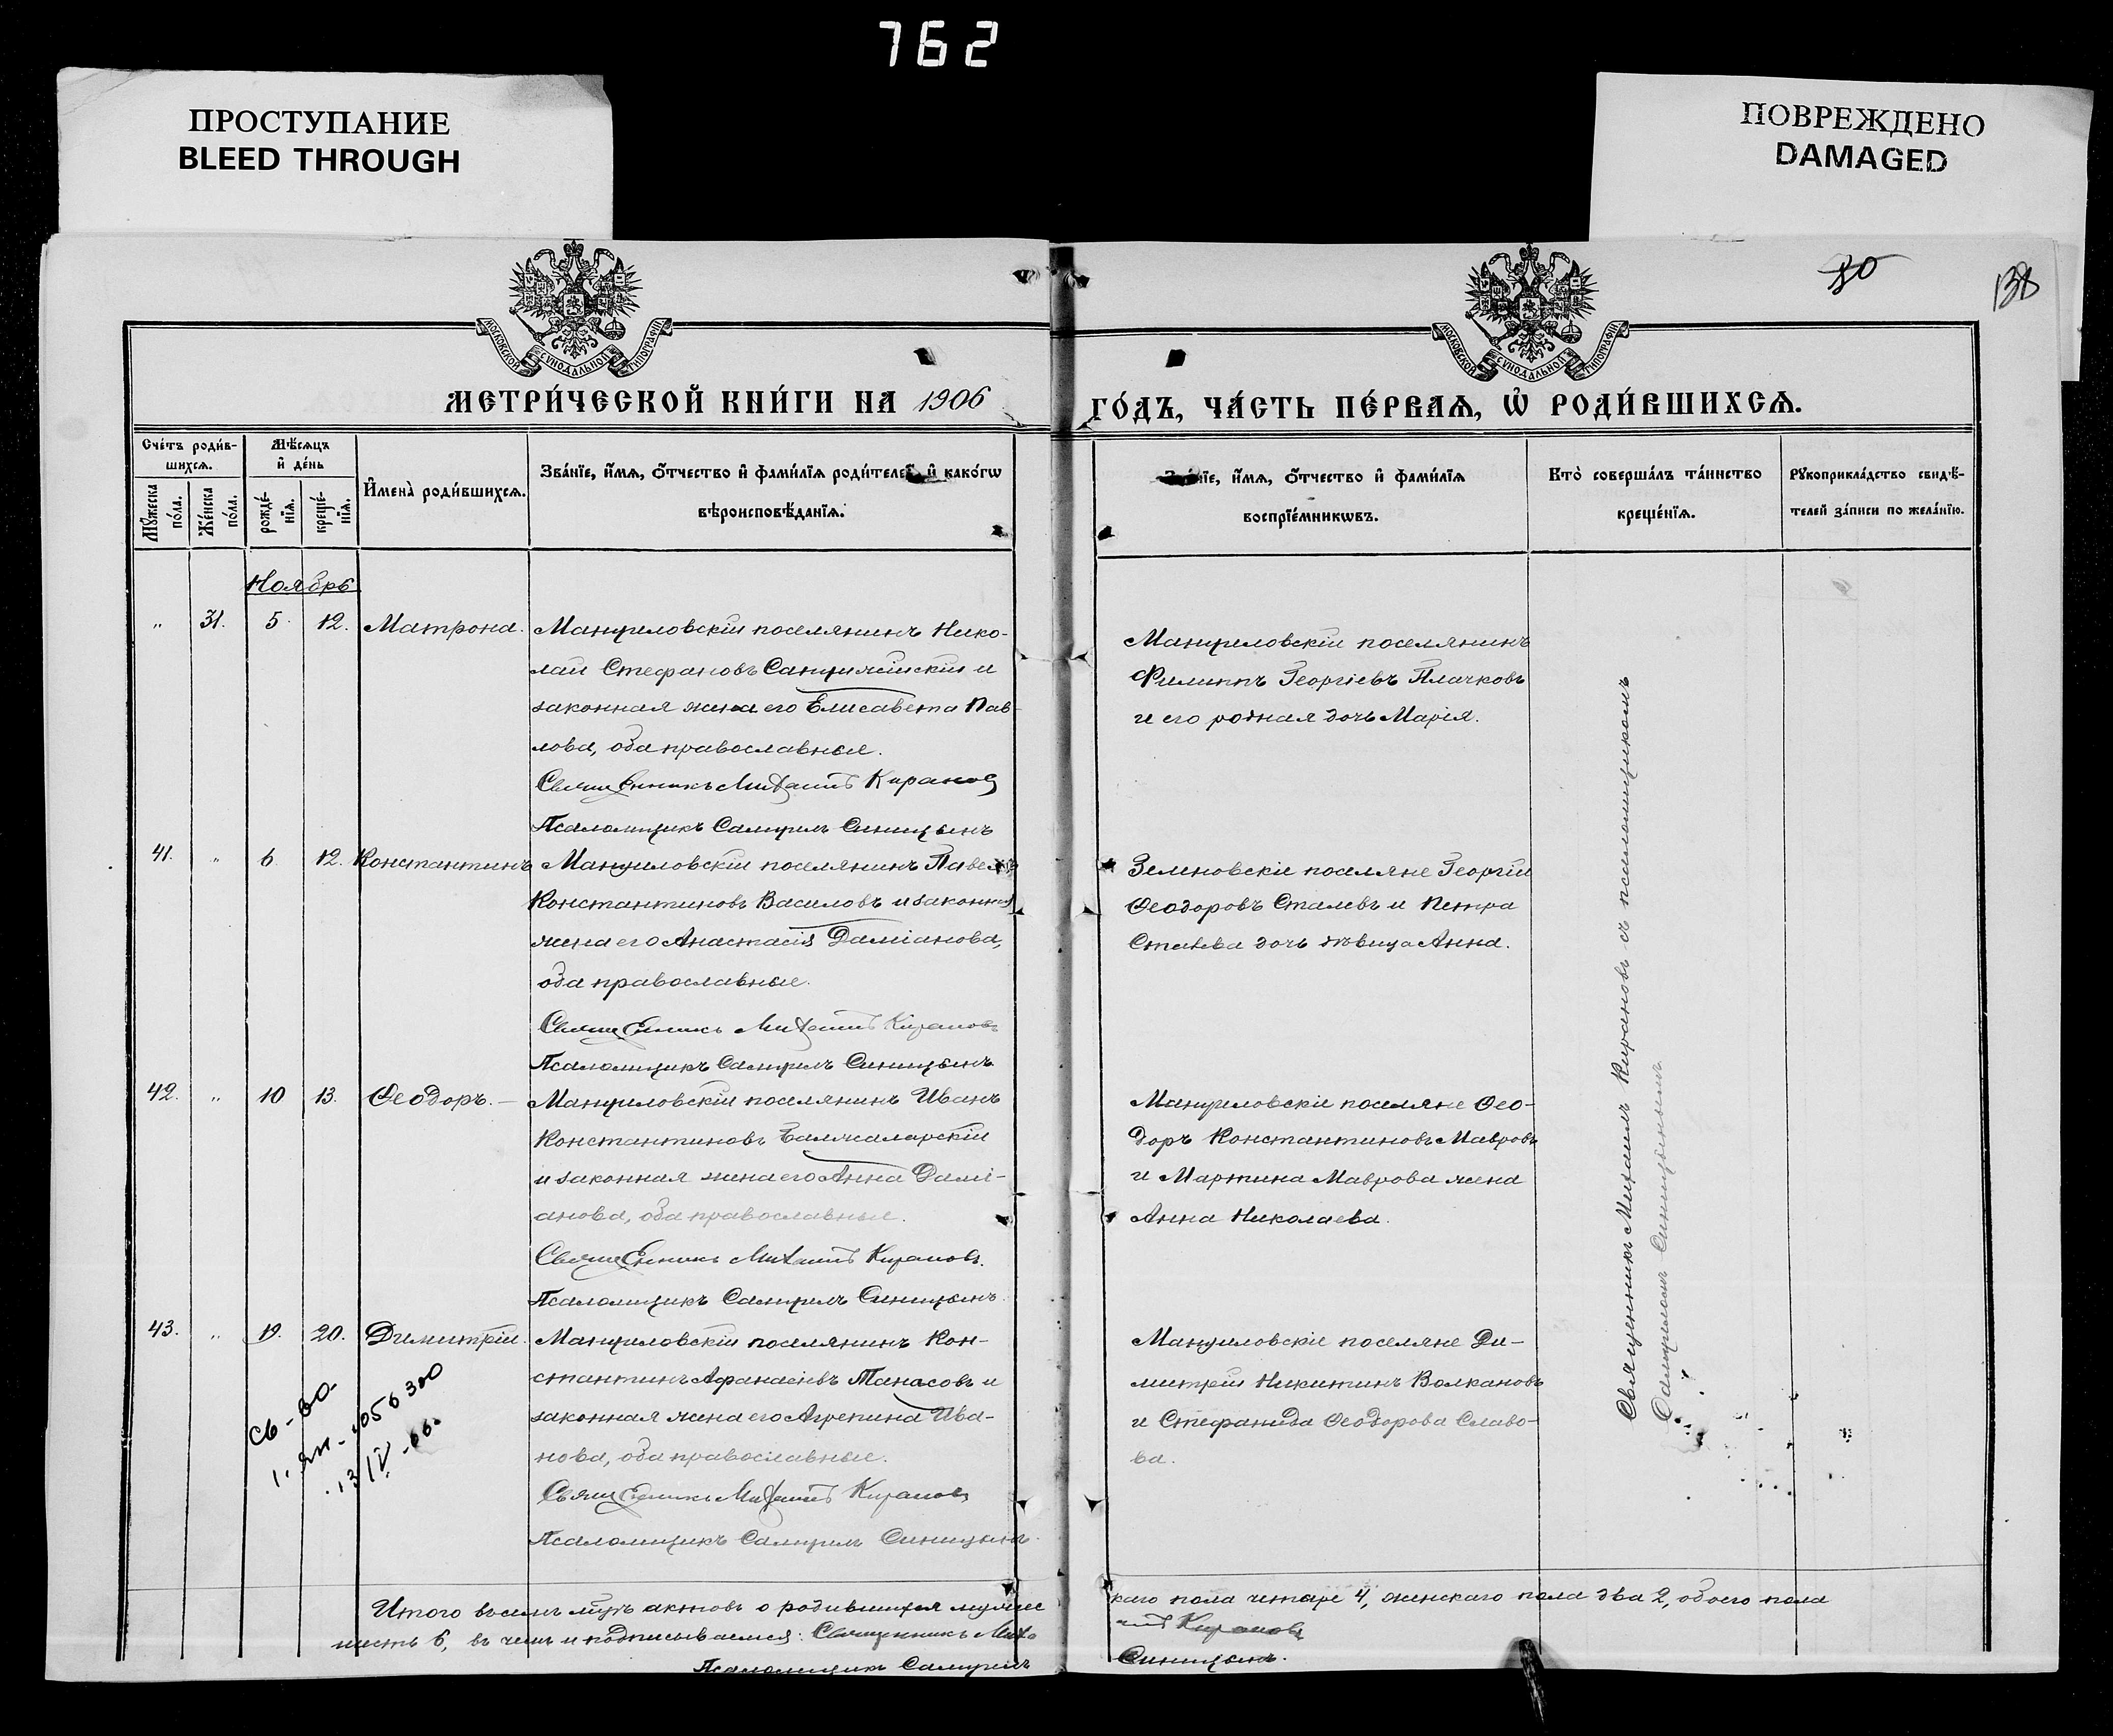 762
ПРОСТУПАНИЕ
BLEED THROUGH
ПОВРЕЖДЕНО
DAMAGED
30
138
МОСКОВСКОЙ СѴНОДАЛЬНОЙ ТИПОГРАФІИ
МОСКОВСКОЙ СѴНОДАЛЬНОЙ ТИПОГРАФІИ
МЕТРИ́ЧЕСКОЙ КНИ́ГИ НА 1906
ГО́ДЪ, ЧА́СТЬ ПЕ́РВАѦ, Ѡ҆ РОДИ́ВШИХСѦ.
Сче́тъ роди́в-
шихсѧ.
Мѣ́сѧцъ
и҆ де́нь
Мꙋ́жеска по́ла.
Же́нска по́ла.
рожде́-
нїѧ.
креще́-
нїѧ.
И҆мена̀ роди́вшихсѧ.
Зва́нїе, и҆́мѧ, ѻ҆́тчество и҆ фами́лїѧ роди́телей и҆ како́гѡ
вѣроисповѣ́данїѧ.
Зва́нїе, и҆́мѧ, ѻ҆́тчество и҆ фами́лїѧ
воспрїе́мникѡвъ.
Кто̀ соверша́лъ та́инство
креще́нїѧ.
Рꙋкоприкла́дство свидѣ́-
телей за́писи по жела́нїю.
Ноябрь
" 31. 5. 12. Матрона. Мануиловскій поселянинъ Нико-
лай Стефановъ и
законная жена его Елисавета Пав-
лова, оба православные.
Священникъ Михаилъ Киранов
Псаломщикъ Самуилъ Синицынъ
Мануиловскій поселянинъ
Филиппъ Георгіевъ Плачковъ
и его родная дочь Марія.
41. " 6. 12. Константинъ Мануиловскій поселянинъ Павелъ
Константиновъ Василовъ и законная
жена его Анастасія Даміанова,
оба православные.
Священникъ Михаилъ Кирановъ
Псаломщикъ Самуилъ Синицынъ
Зеленовскіе поселяне Георгій
Ѳеодоровъ Сталевъ и Петра
Сталева дочь дѣвица Анна.
42. " 10 13. Ѳеодоръ. — Мануиловскій поселянинъ Иванъ
Константиновъ Балжаларскій
и законная жена его Анна Дамі-
анова, оба православные.
Священникъ Михаилъ Кирановъ.
Псаломщикъ Самуилъ Синицынъ.
Мануиловскіе поселяне Ѳео-
доръ Константиновъ Мавровъ
и Мартина Маврова жена
Анна Николаева.
43. " 19. 20. Димитрій. Мануиловскій поселянинъ Кон-
стантинъ Афанасіевъ Танасовъ и
законная жена его Агрепина Ива-
нова, оба православные.
Священникъ Михаилъ Кирановъ
Псаломщикъ Самуилъ Синицынъ.
Мануиловскіе поселяне Ди-
митрій Никитинъ Волкановъ
и Стефанида Ѳеодорова Славо-
ва.
Священникъ Михаилъ Кирановъ съ псаломщикомъ
Самуиломъ Синицынымъ
Итого восемь актовъ о родившихся мужес
каго пола четыре 4, женскаго пола два 2, обоего пола
шесть 6, въ чемъ и подписываемся: Священникъ Миха
илъ Кирановъ
Псаломщикъ Самуилъ
Синицынъ.